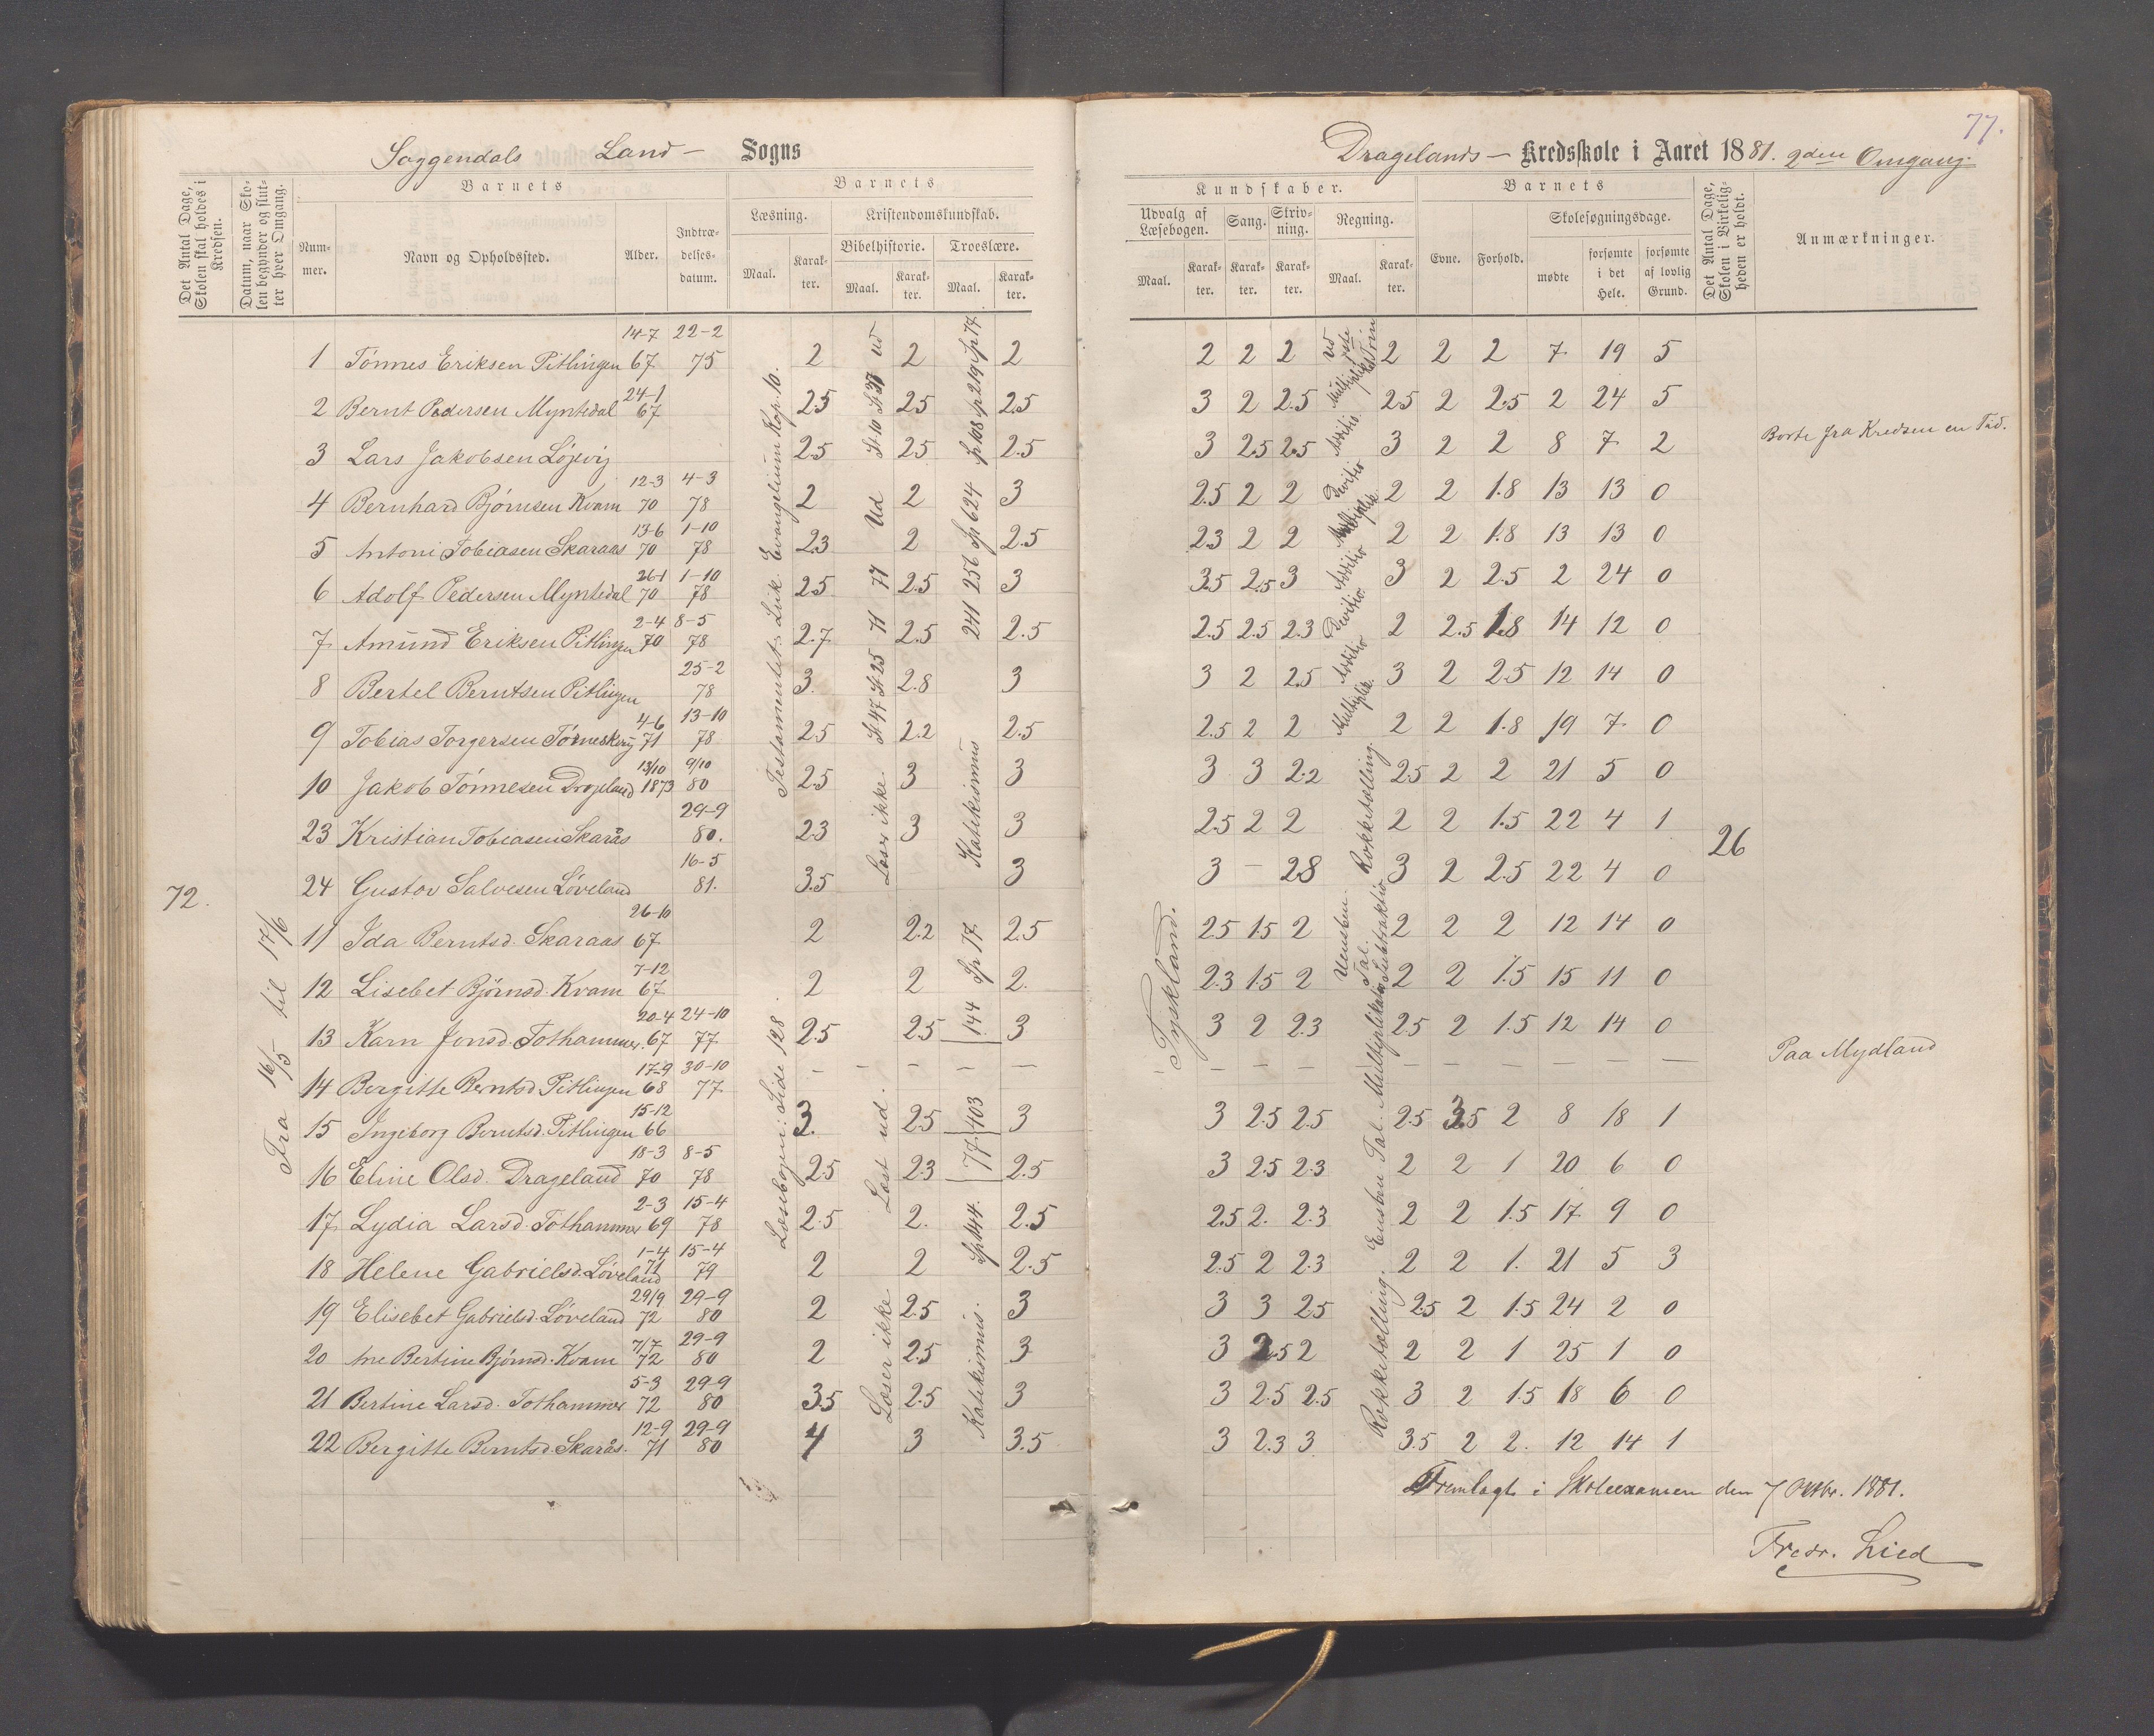 77.
Soggendals Land- Sogns
Dragelands- Kredsskole i Aaret 1881. 2den Omgang.
Det Antal Dage, Skolen skal holdes i Kredsen.
Datum, naar Skolen begynder og slutter hver Omgang.
Barnets
Nummer.
Navn og Opholdssted.
Alder.
Indtrædelsesdatum.
Barnets
Læsning.
Maal.
Karakter.
Kristendomskundskab.
Bibelhistorie.
Maal.
Karakter.
Troeslære.
Maal.
Karakter.
Kundskaber.
Udvalg af Læsebogen.
Maal.
Karakter.
Sang.
Karakter.
Skrivning.
Karakter.
Regning.
Maal.
Karakter.
Barnets
Evne.
Forhold.
Skolesøgningsdage.
mødte
forsømte i det Hele.
forsømte af lovlig Grund.
Det Antal Dage, Skolen i Virkeligheden er holdt.
Anmærkninger.
72.
Fra 16/5 til 17/6
1 Tönnes Eriksen Pitlingen 14-7 67 22-2 75 2 2 2 2 2 2 2 2 2 7 19 5
2 Bernt Pedersen Myntedal 24-1 67 2.5 2.5 2.5 3 2 2.5 2.5 2 2.5 2 24 5
3 Lars Jakobsen Löjevig 2.5 2.5 2.5 3 2.5 2.5 3 2 2 8 7 2 Borte fra Kredsen en Tid.
4 Bernhard Bjørnsen Kvam 12-3 70 4-3 78 2 2 3 2.5 2 2 2 2 1.8 13 13 0
5 Antoni Tobiasen Skaraas 13-6 70 1-10 78 2.3 2 2.5 2.3 2 2 2 2 1.8 13 13 0
6 Adolf Pedersen Myntedal 26-1 70 1-10 78 2.5 2.5 3 3.5 2.5 3 3 2 2.5 2 24 0
7 Amund Eriksen Pitlingen 2-4 70 8-5 78 2.7 2.5 2.5 2.5 2.5 2.3 2 2.5 1.8 14 12 0
8 Bertel Berntsen Pitlingen 25-2 78 3. 2.8 3 3 2 2.5 3 2 2.5 12 14 0
9 Tobias Torgersen 4-6 71 13-10 78 2.5 2.2 2.5 2.5 2 2 2 2 1.8 19 7 0
10 Jakob Tönnesen Drageland 13/10 1873 9/10 80 2.5 3 3 3 3 2.2 2.5 2 2 21 5 0
23 Kristian Tobiasen Skarås 29-9 80. 2.3 3 3 2.5 2 2 2 2 1.5 22 4 1
24 Gustav Salvesen Löveland 16-5 81. 3.5 3 3 - 2.8 3 2 2.5 22 4 0
11 Ida Berntsd. Skaraas 26-10 67 2 2.2 2.5 2.5 1.5 2 2 2 2 12 14 0
12 Lisebet Bjørnsd. Kvam 7-12 67 2 2 2. 2.3 1.5 2 2 2 1.5 15 11 0
13 Karn Jonsd. Tothammer. 20-4 67 24-10 77 2.5 2.5 3 3 2 2.3 2.5 2 1.5 12 14 0
14 Bergitte Berntsd Pitlingen 17-9 68 30-10 77 - - - - - - - - - - - - - Paa Mydland
15 Ingeborg Berntsd. Pitlingen 15-12 66 3. 2.5 3 3 2.5 2.5 2.5 3.5 2 8 18 1
16 Eline Olsd. Drageland 18-3 70 8-5 78 2.5 2.3 2.5 3 2.5 2.3 2 2 1 20 6 0
17 Lydia Larsd. Tothammer 2-3 69 15-4 78 2.5 2. 2.5 2.5 2. 2.3 2 2 1.5 17 9 0
18 Helene Gabrielsd. Löveland 1-4 71 15-4 79 2 2 2.5 2.5 2 2.3 2 2 1. 21 5 3
19 Elisebet Gabrielsd. Löveland 29/9 72 29-9 80 2 2.5 3 3 3 2.5 2.5 2 1.5 24 2 0
20 Ane Bertine Bjørnsd. Kvam 7/7 72 29-9 80 2 2.5 3 3 2.5 2 2 2 1 25 1 0
21 Bertine Larsd. Tothammer 5-3 72 29-9 80 3.5 2.5 3 3 2.5 2.5 3 2 1.5 18 6 0
22 Bergitte Berntsd. Skarås. 12-9 71 29-9 80 4 3 3.5 3 2.3 3 3.5 2 2. 12 14 1
Testamentet: Luk. Evangelium Kap. 10.
Læsebogen: Side 128.
Ud
Læser ikke.
Læst ud.
Læser ikke
Katekismus
Sp 77.
144
403
77.
Sp 144.
Katekismus.
Tyskland.
Divitio
Additio
Divitio.
Additio
Multiplik.
Rækketælling.
Uensben. Tal.
Rækketælling. Ensben Tal. Multiplikation Subtraktio
26
Fremlagt i Skoleexamen den 7 Oktbr. 1881.
Fredr. Lied